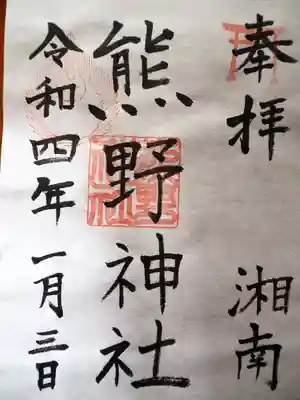 奉拝 湘南
熊野神社
令和四年一月三日